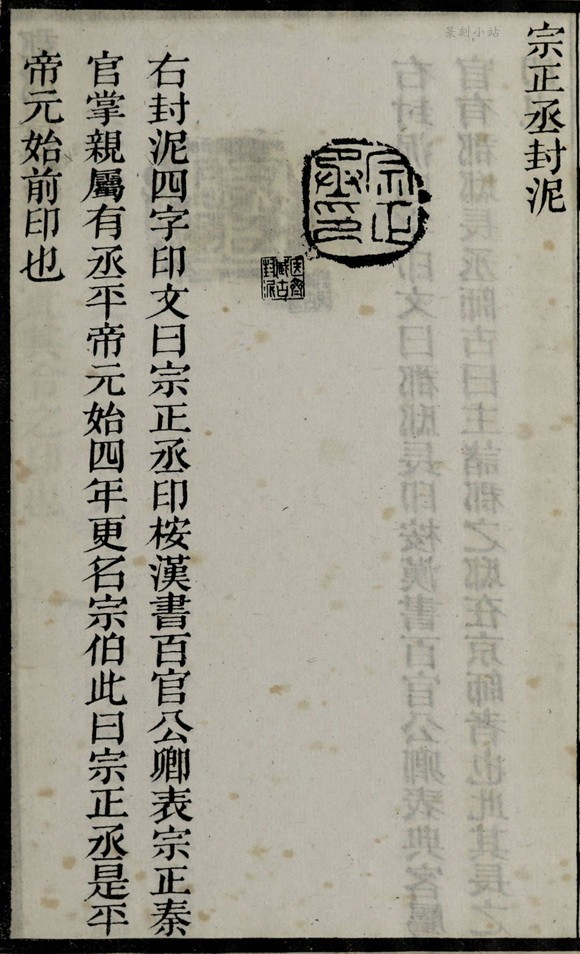 篆刻小站
宗正丞封泥
宗正
丞印
右封泥四字印文曰宗正丞印桉漢書百官公卿表宗正秦
官掌親屬有丞平帝元始四年更名宗伯此曰宗正丞是平
帝元始前印也